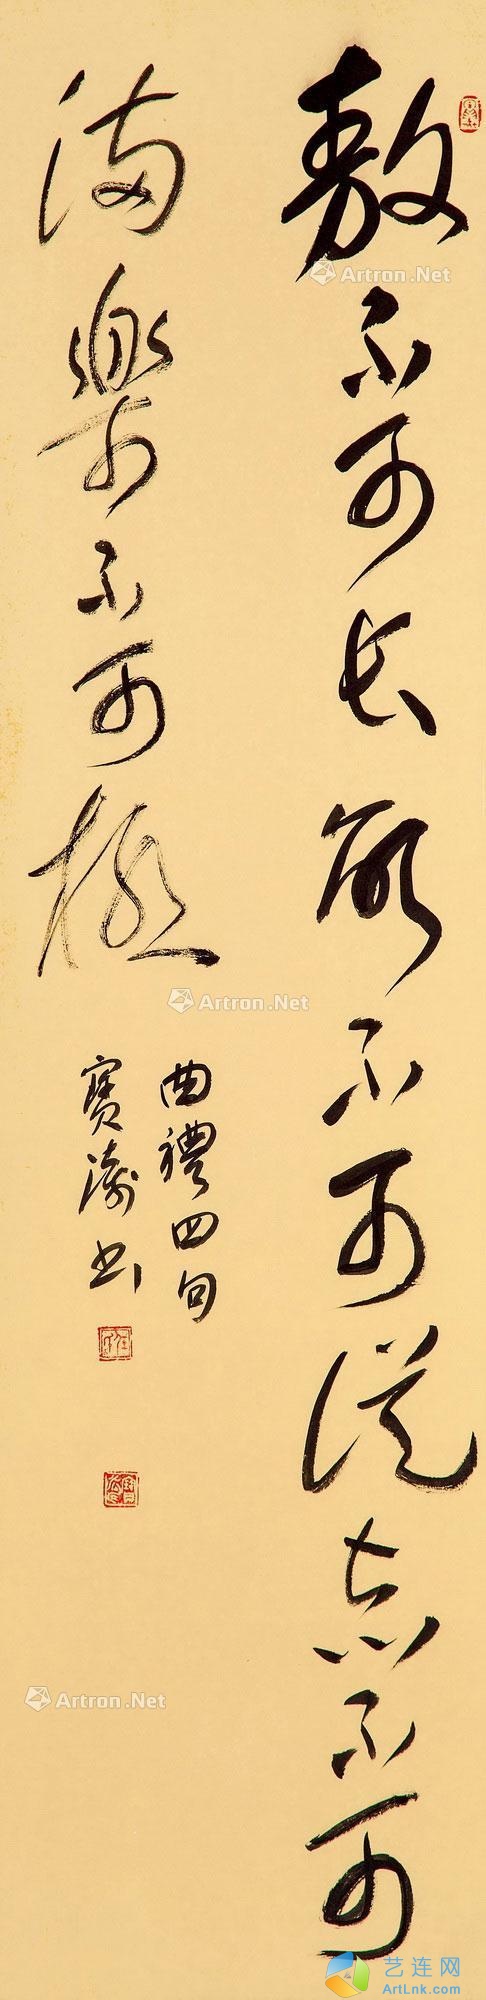 敖不可长欲不可從志不可
满樂不可極
曲禮四句
寳濤书
Artron.Net
Artron.Net
Artron.Net
艺连网
ArtLnk.com